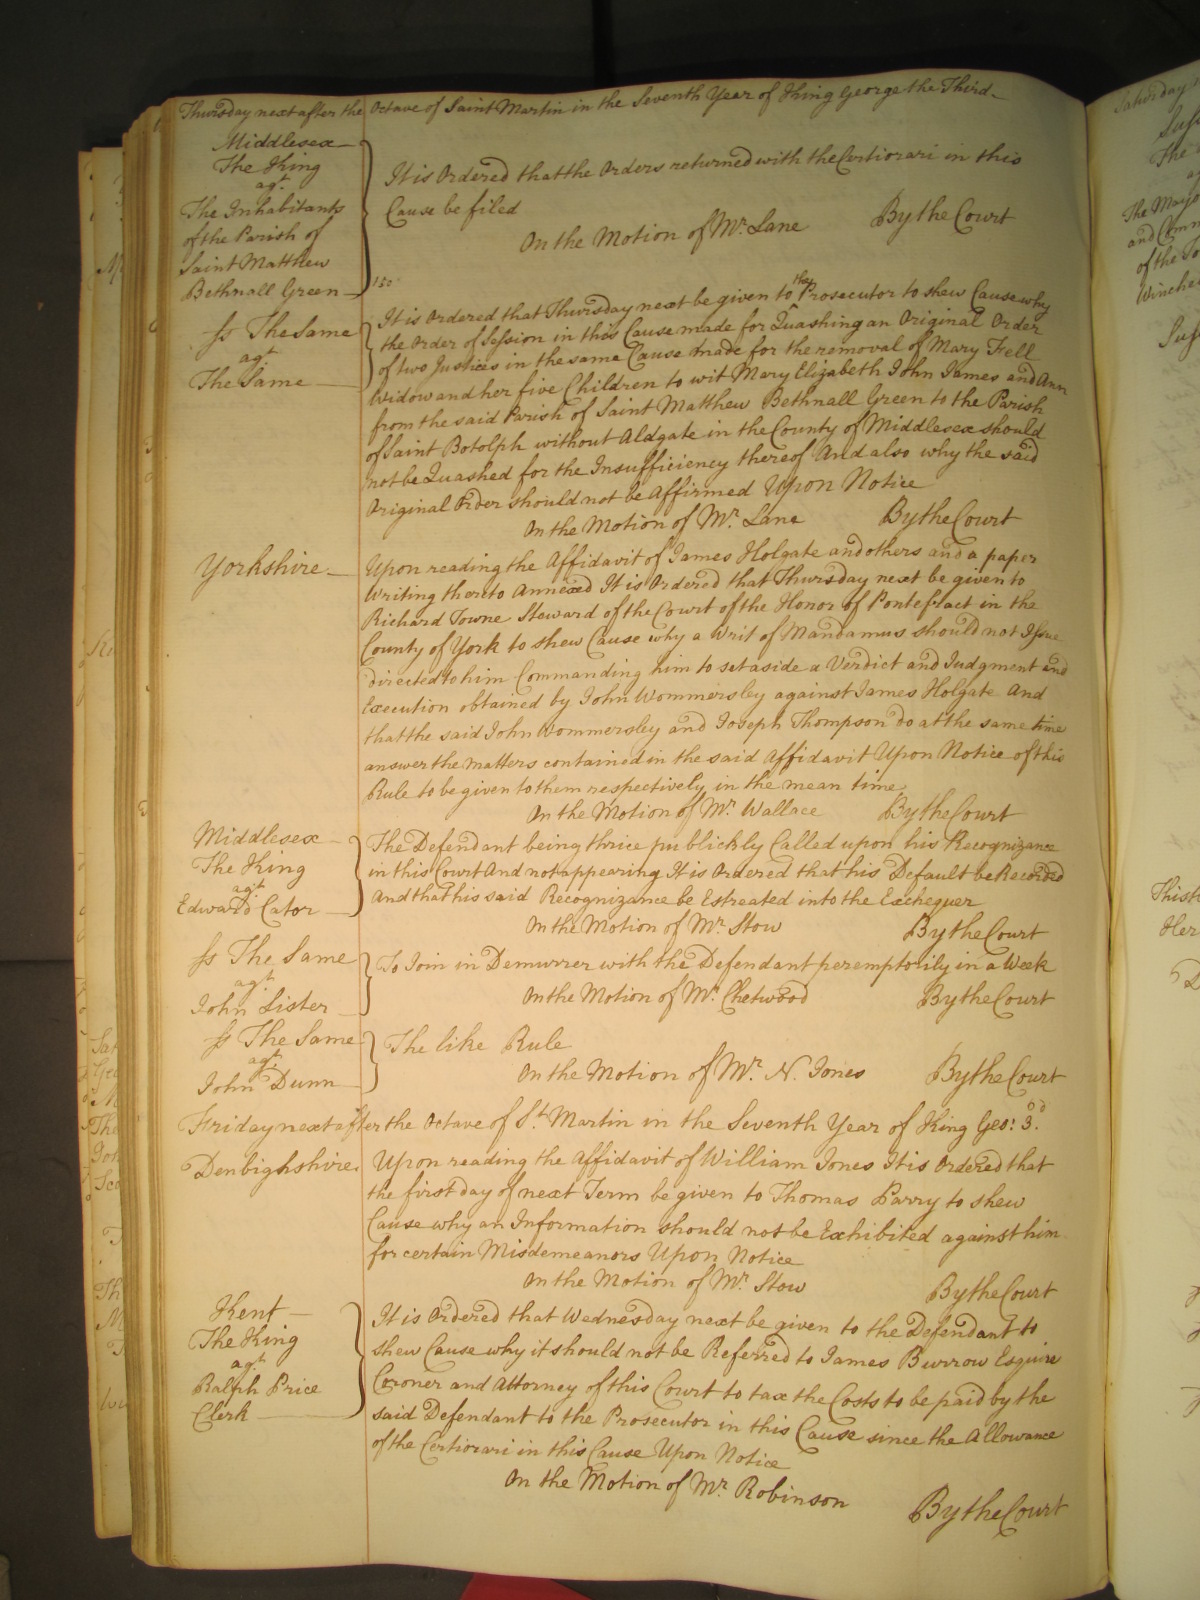 Thursday next after the Octave of Saint Martin in the Seventh Year of King George the Third
Middlesex
The King
agt.
The Inhabitants
of the Parish of
Saint Matthew
Bethnall Green
It is Ordered that the Orders returned with the Certiorari in this
Cause be filed
On the Motion of Mr. Lane By the Court
Ss The Same
agt.
The Same
It is Ordered that Thursday next be given to the Prosecutor to shew Cause why
the Order of Session in this Cause made for Quashing an Original Order
of two Justices in the same Cause made for the removal of Mary Fell
Widow and her five Children to wit Mary Elizabeth John James and Ann
from the said Parish of Saint Matthew Bethnall Green to the Parish
of Saint Botolph without Aldgate in the County of Middlesex should
not be Quashed for the Insufficiency thereof And also why the said
Original Order should not be Affirmed Upon Notice
On the Motion of Mr. Lane By the Court
Yorkshire
Upon reading the Affidavit of James Holgate and others and a paper
Writing thereto Annexed It is Ordered that Thursday next be given to
Richard Towne Steward of the Court of the Honor of Pontefract in the
County of York to shew Cause why a Writ of Mandamus should not Issue
directed to him Commanding him to set aside a Verdict and Judgment and
Execution obtained by John Wommersley against James Holgate And
that the said John Wommersley and Joseph Thompson do at the same time
answer the matters contained in the said Affidavit Upon Notice of this
Rule to be given to them respectively in the mean time
On the Motion of Mr. Wallace By the Court
Middlesex
The King
agt.
Edward Cator
The Defendant being thrice publickly Called upon his Recognizance
in this Court And not appearing It is Ordered that his Default be Recorded
And that his said Recognizance be Estreated into the Exchequer
On the Motion of Mr. Stow By the Court
Ss The Same
agt.
John Lister
To Join in Demurrer with the Defendant peremptorily in a Week
On the Motion of Mr. Chetwood By the Court
Ss The Same
agt.
John Dunn
The like Rule
On the Motion of Mr. N. Jones By the Court
Friday next after the Octave of St. Martin in the Seventh Year of King Geo: 3d.
Denbighshire
Upon reading the Affidavit of William Jones It is Ordered that
the first day of next Term be given to Thomas Parry to shew
Cause why an Information should not be Exhibited against him
for certain Misdemeanors Upon Notice
On the Motion of Mr. Stow By the Court
Kent
The King
agt.
Ralph Price
Clerk
It is Ordered that Wednesday next be given to the Defendant to
shew Cause why it should not be Referred to James Burrow Esquire
Coroner and Attorney of this Court to tax the Costs to be paid by the
said Defendant to the Prosecutor in this Cause since the Allowance
of the Certiorari in this Cause Upon Notice
On the Motion of Mr. Robinson By the Court